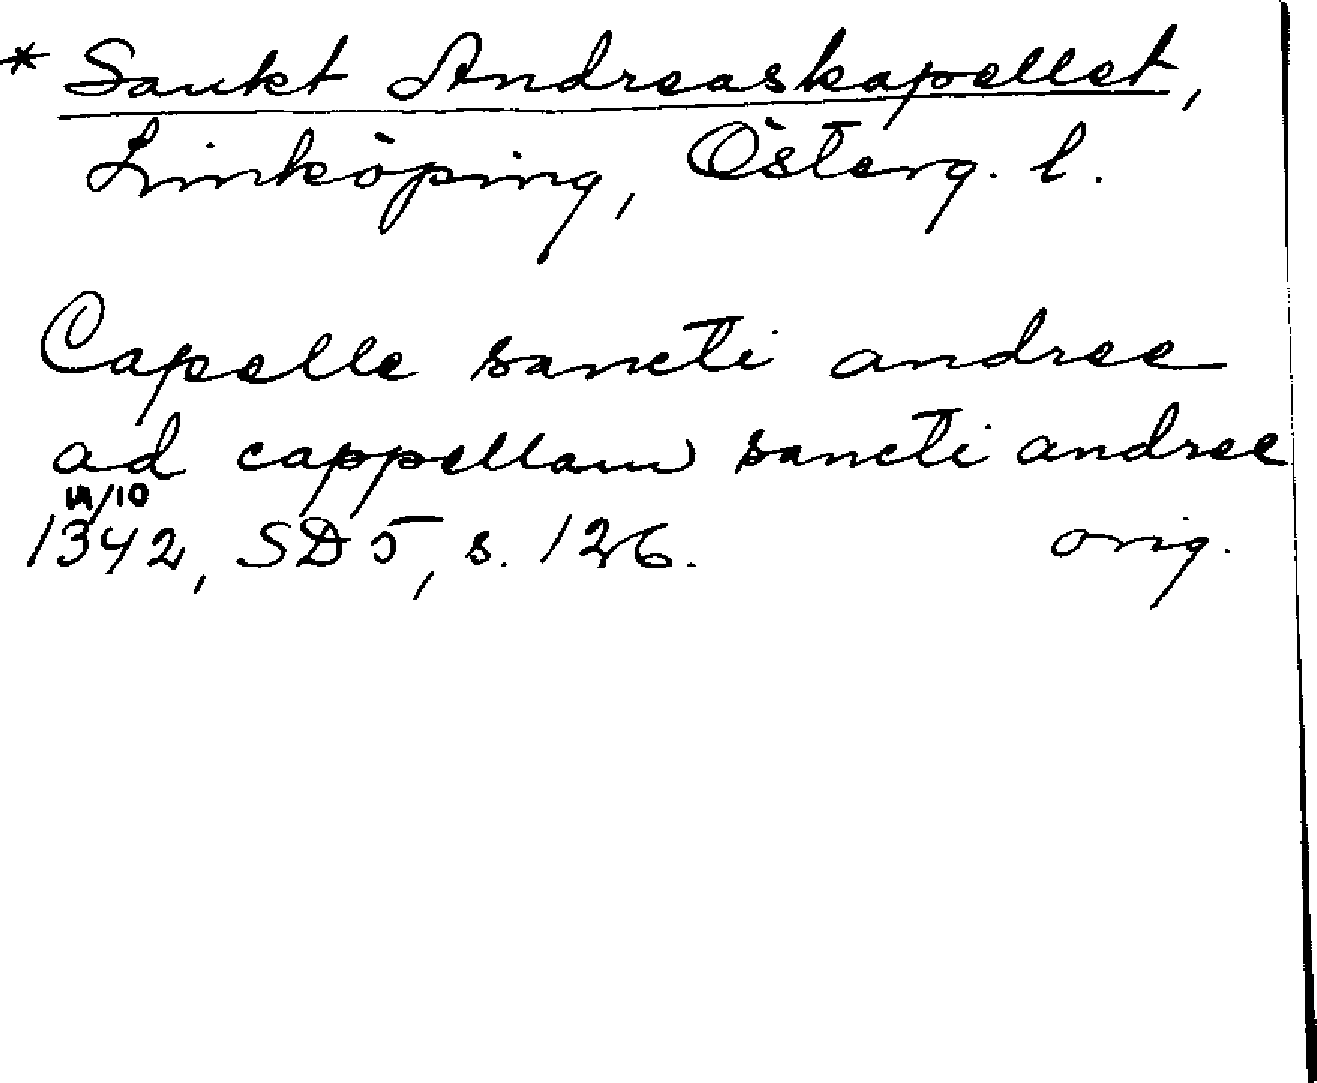 * Sankt Andreaskapellet,
Linköping, Österg. l.
Capelle sancti andree
ad cappellam sancti andree
14/10
1342, SD 5, s. 126. orig.